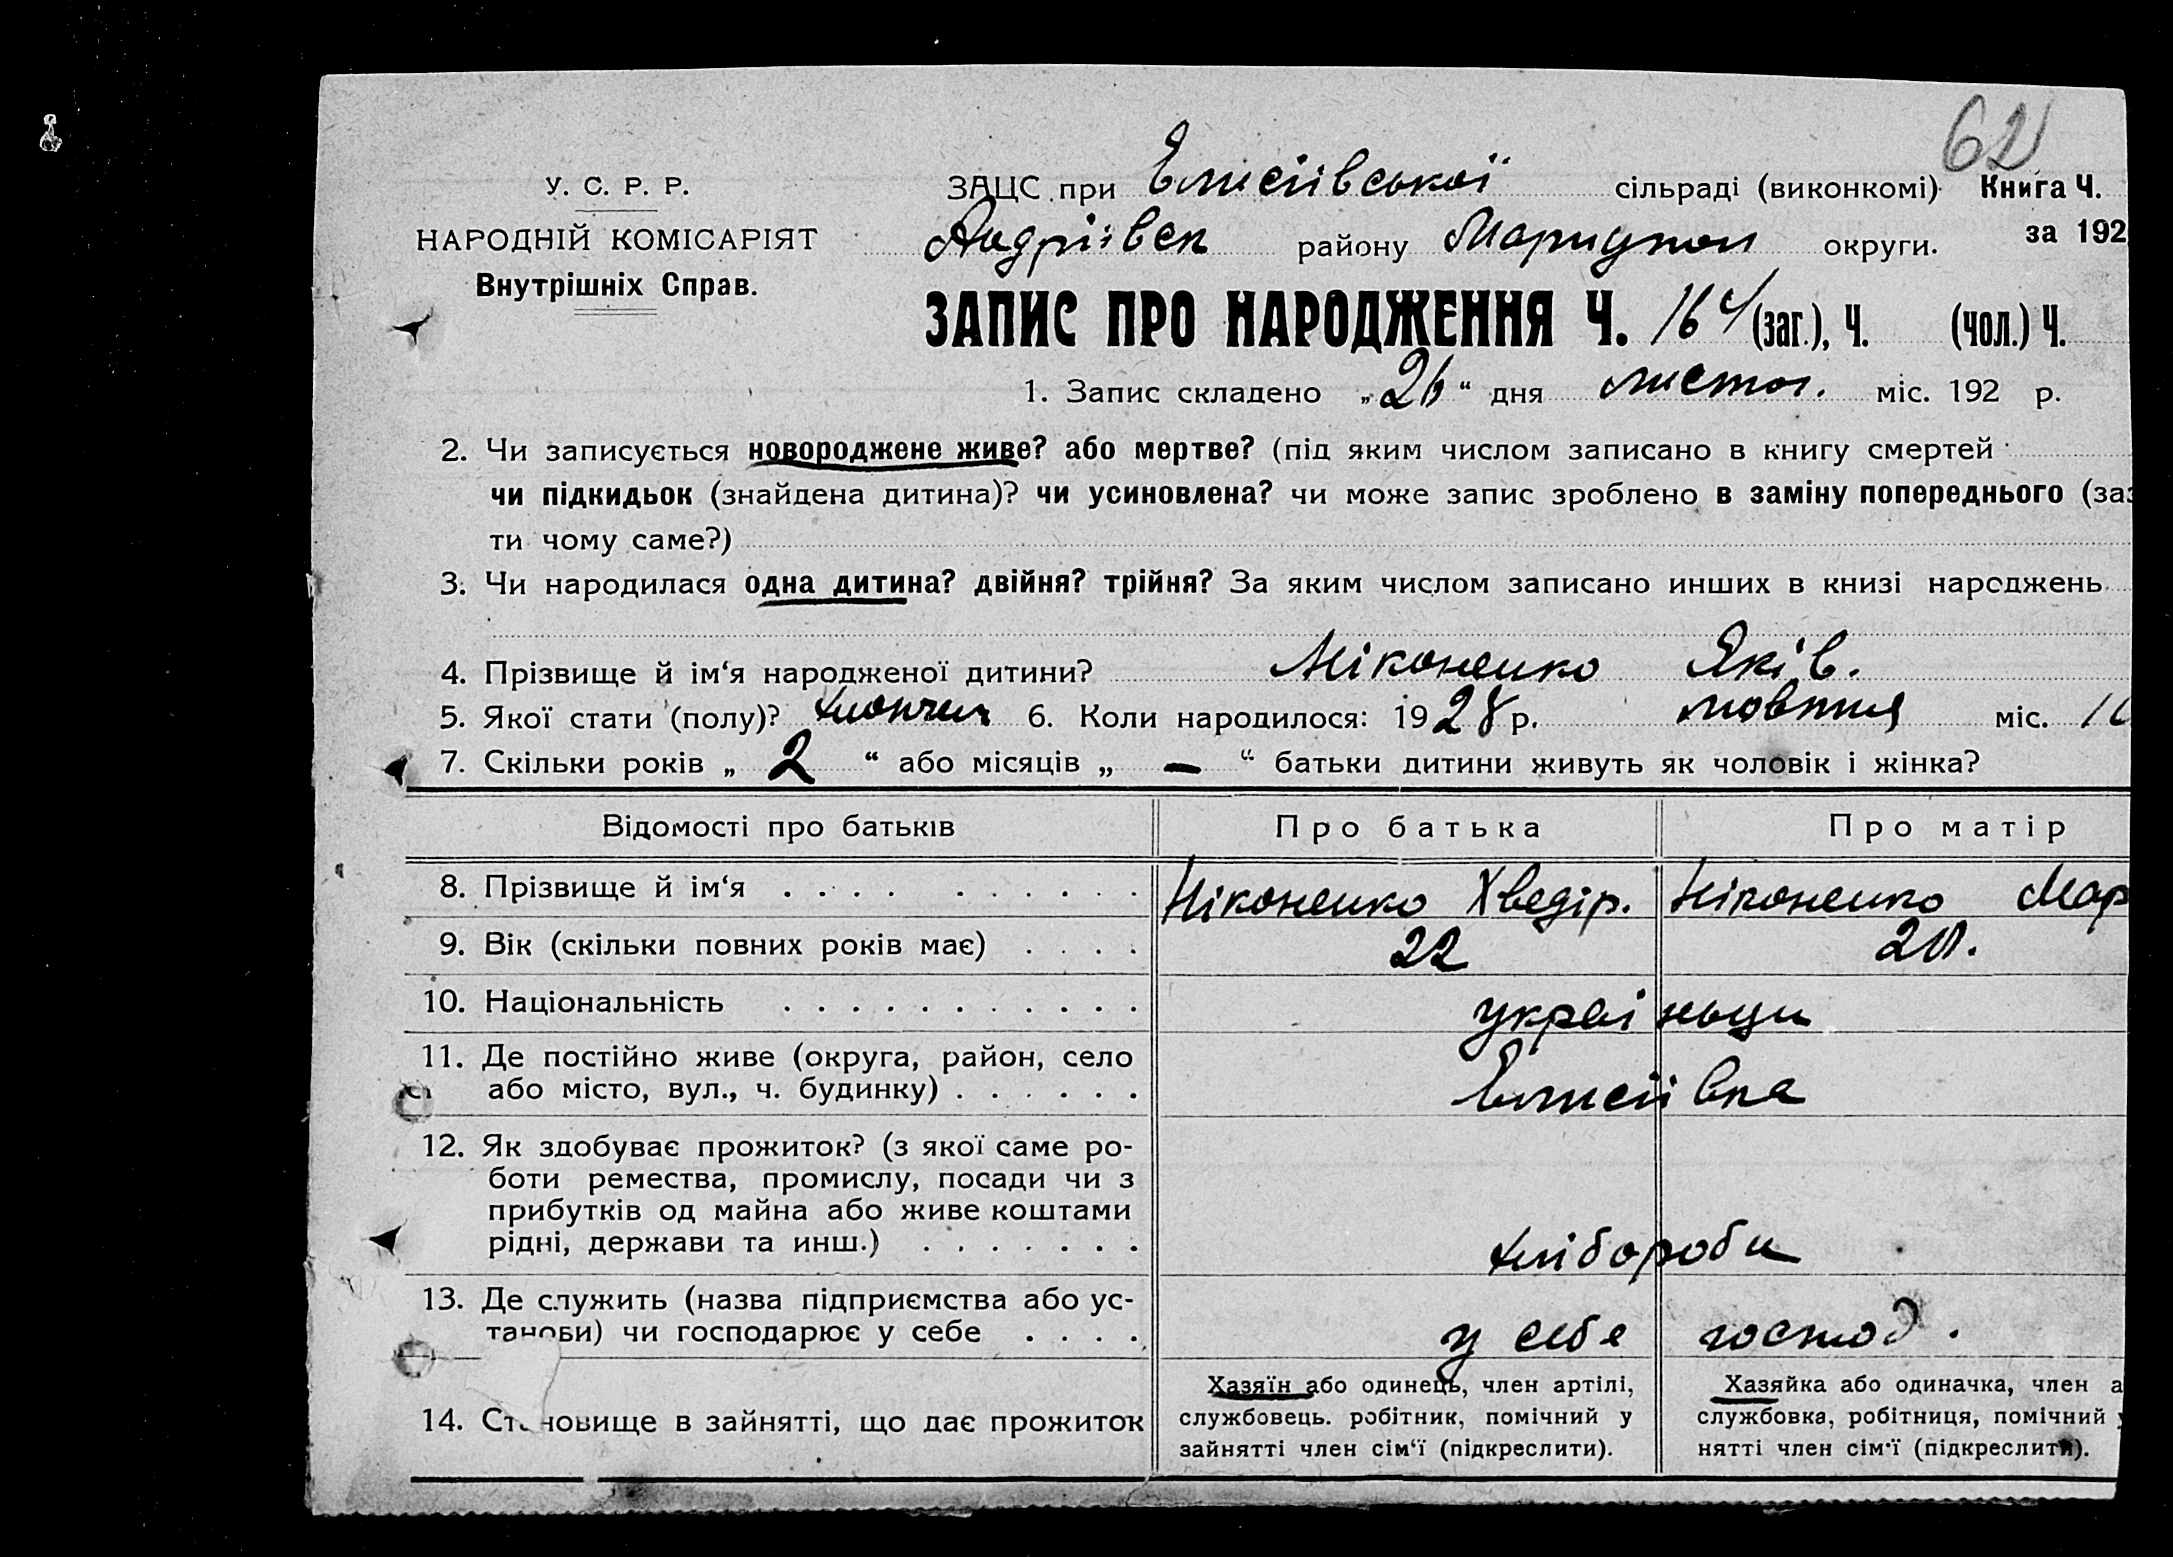 62
У. С. Р. Р.
НАРОДНІЙ КОМІСАРІЯТ
Внутрішніх Справ.
ЗАЦС при Єлисеївської сільраді (виконкомі) Книга Ч.
Андріївск району Маріупол округи. за 192
ЗАПИС ПРО НАРОДЖЕННЯ Ч. 164 (заг.), Ч. (чол.) Ч.
1. Запис складено „26“ дня листоп. міс. 192 р.
2. Чи записується новороджене живе? або мертве? (під яким числом записано в книгу смертей
чи підкидьок (знайдена дитина)? чи усиновлена? чи може запис зроблено в заміну попереднього (заз
ти чому саме?)
3. Чи народилася одна дитина? двійня? трійня? За яким числом записано инших в книзі народжень
4. Прізвище й ім‘я народженої дитини? Ніконенко Яків.
5. Якої стати (полу)? хлопчик 6. Коли народилося: 1928 р. жовтня міс. 10
7. Скільки років „ 2 “ або місяців „ – “ батьки дитини живуть як чоловік і жінка?
Відомості про батьків Про батька Про матір
8. Прізвище й ім‘я . . . . . . . . . . Ніконенко Хведір. Ніконенко Мар
9. Вік (скільки повних років має) . . . . 22 20.
10. Національність . . . . . . . . . . . українці
11. Де постійно живе (округа, район, село
або місто, вул., ч. будинку) . . . . . . Єлисеївка
12. Як здобуває прожиток? (з якої саме ро-
боти ремества, промислу, посади чи з
прибутків од майна або живе коштами
рідні, держави та инш.) . . . . . . . хлібороби
13. Де служить (назва підприємства або ус-
танови) чи господарює у себе . . . . у себе господ.
14. Становище в зайнятті, що дає прожиток
Хазяїн або одинець, член артілі,
службовець. робітник, помічний у
зайнятті член сім‘ї (підкреслити).
Хазяйка або одиначка, член а
службовка, робітниця, помічний у
нятті член сім‘ї (підкреслити).